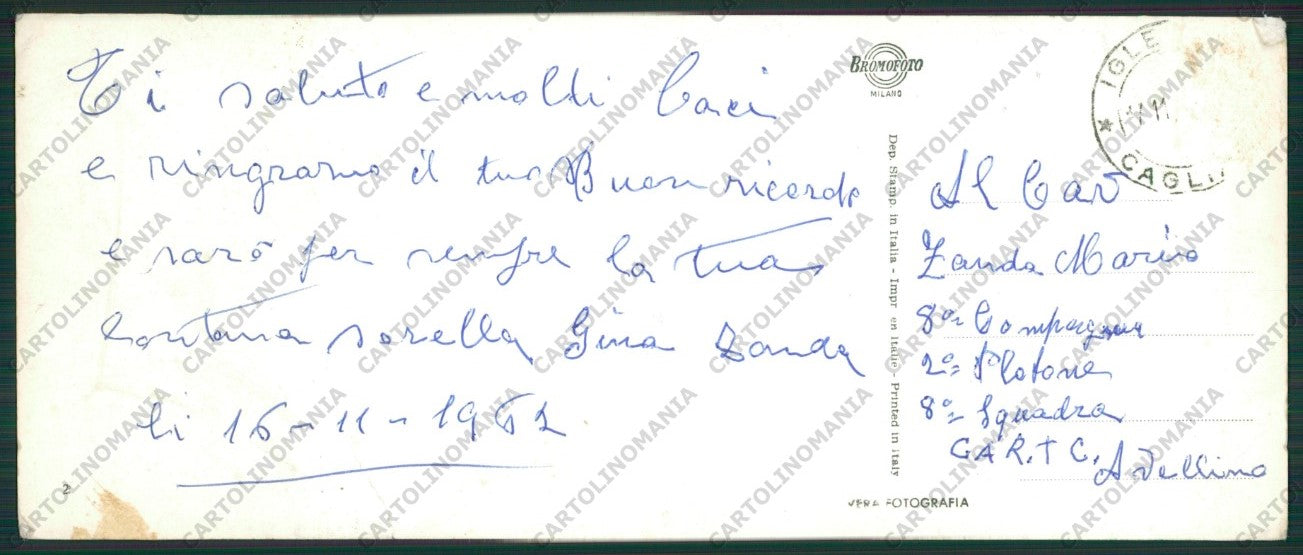 Ti saluto e moldi baci
e ringrazio il tuo Buon ricordo
e sarò per sempre la tua
lontana sorella Gina Zanda
li 16-11-1962
2
BROMOFOTO
MILANO
Dep. Stamp. in Italia - Impr en Italie - Printed in italy
VERA FOTOGRAFIA
IGLE
11
CAGLI
Al Car
Zanda Marino
8ª Compagnia
2º= Plotone
8ª= Squadra
C.A.R.T.C.
Avellino
CARTOLINOMANIA